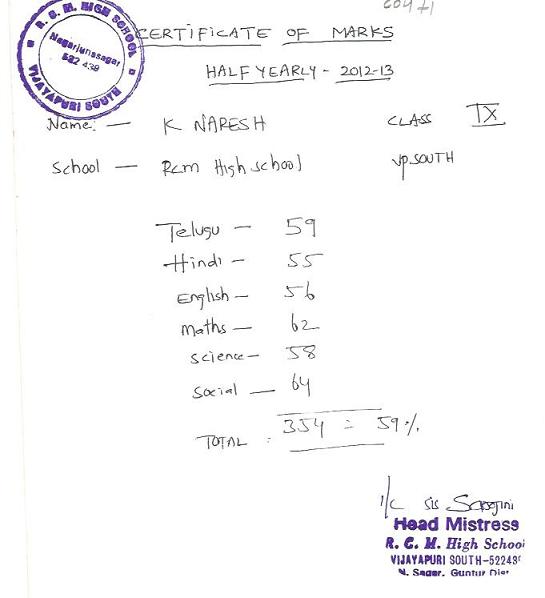 CERTIFICATE OF MARKS
HALF YEARLY - 2012-13
R. C. M. HIGH SCHOOL
Nagarjunasagar
522 439
VIJAYAPURI SOUTH
Name: — K NARESH CLASS IX
School — Rcm High school VP.SOUTH
Telugu — 59
Hindi — 55
English — 56
maths — 62
science — 58
social — 64
TOTAL : 354 = 59%
I/c sis Sarojini
Head Mistress
R. C. M. High School
VIJAYAPURI SOUTH-52243
N. Sagar, Guntur Dist